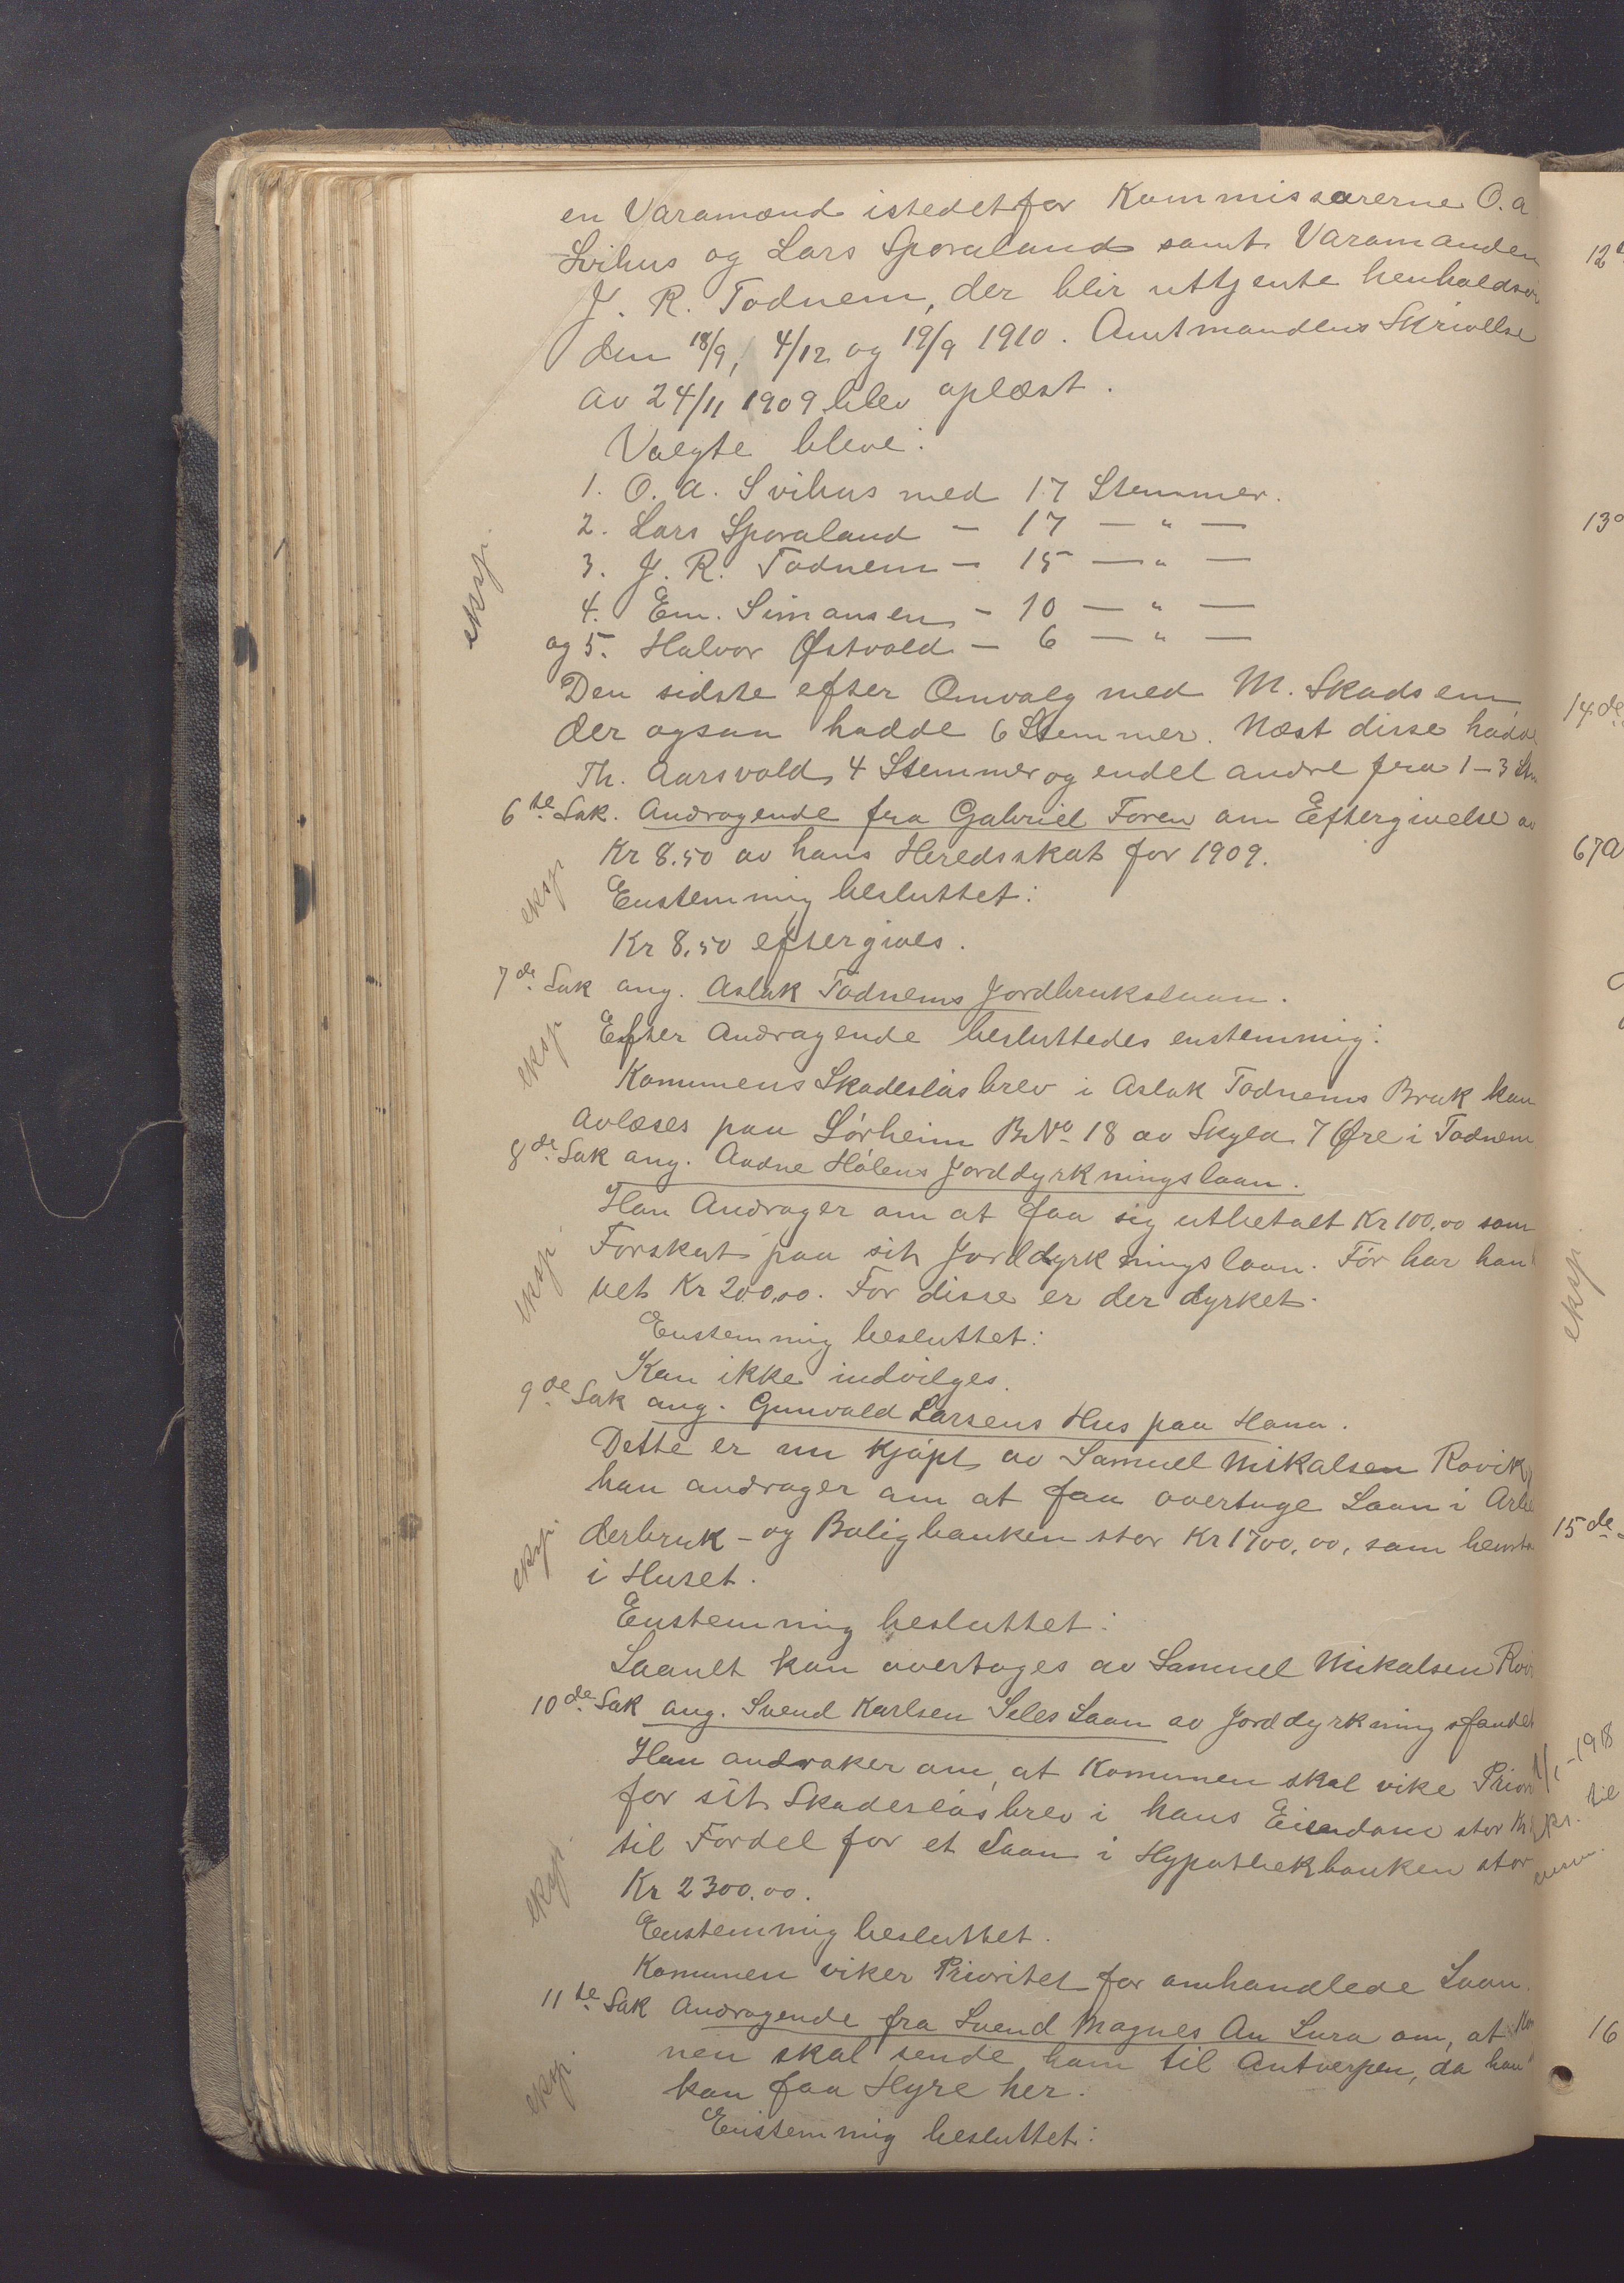 en Varamænd istedetfor Kommissærerne O. a
Svihus og Lars Sporaland samt Varamanden
J. R. Todnem, der blir uttjente henholdsv
den 18/9, 4/12 og 19/9 1910. Amtmandens Skrivelse
av 24/11 1909 blev oplæst.
Valgte bleve:
1. O. A. Svihus med 17 Stemmer.
2. Lars Sporaland – 17 — " —
3. J. R. Todnem – 15 — " —
4. Em. Simonsen – 10 — " —
og 5. Halvor Østvold – 6 — " —
eksp.
Den sidste efter Omvalg med M. Skadsem,
der ogsaa hadde 6 Stemmer. Næst disse hadde
Th. Aarsvold 4 Stemmer og endel andre fra 1–3 Stm
6te Sak. Andragende fra Gabriel Foren om Eftergivelse av
Kr 8.50 av hans Heredsskat for 1909.
eksp.
Enstemmig besluttet:
Kr 8,50 eftergives.
7de Sak ang. Aslak Todnems Jordbrukslaan.
eksp.
Efter Andragende besluttedes enstemmig:
Komunens Skadesløsbrev i Aslak Todnems Bruk kan
avlæses paa Sørheim B.No 18 av Skyld 7 Øre i Todnem
8de Sak ang. Audne Hølens Jorddyrkningslaan.
Han Andrager om at faa sig utbetalt Kr 100,00 som
Forskut paa sit Jorddyrkningslaan. Før har han
eksp.
uet Kr 200,00. For disse er der dyrket.
Enstemmig besluttet:
Kan ikke indvilges.
9de Sak ang. Gunvald Larsens Hus paa Hana.
Dette er nu kjøpt av Samuel Mikalsen Rovik,
han andrager om at faa overtage Laan i Arbe
derbruk- og Boligbanken stor Kr 1700,00, som hensta
eksp.
i Huset.
Enstemmig besluttet:
Laanet kan overtages av Samuel Mikalsen Rovi
10de Sak ang. Svend Karlsen Seles Laan av Jorddyrkningsfondet
Han andraker om, at Komunen skal vike Priori
for sit Skadesløsbrev i hans Eiendom stor Kr
til Fordel for et Laan i Hypothekbanken stor
eksp.
Kr 2300.00.
Enstemmig besluttet.
Komunen viker Prioritet for omhandlede Laan.
11te Sak Andragende fra Svend Magnes An Lura om, at Kom
nen skal sende ham til Antverpen, da han
eksp.
kan faa Hyre her.
Enstemmig besluttet:
13
14de
67
eksp.
15de
16